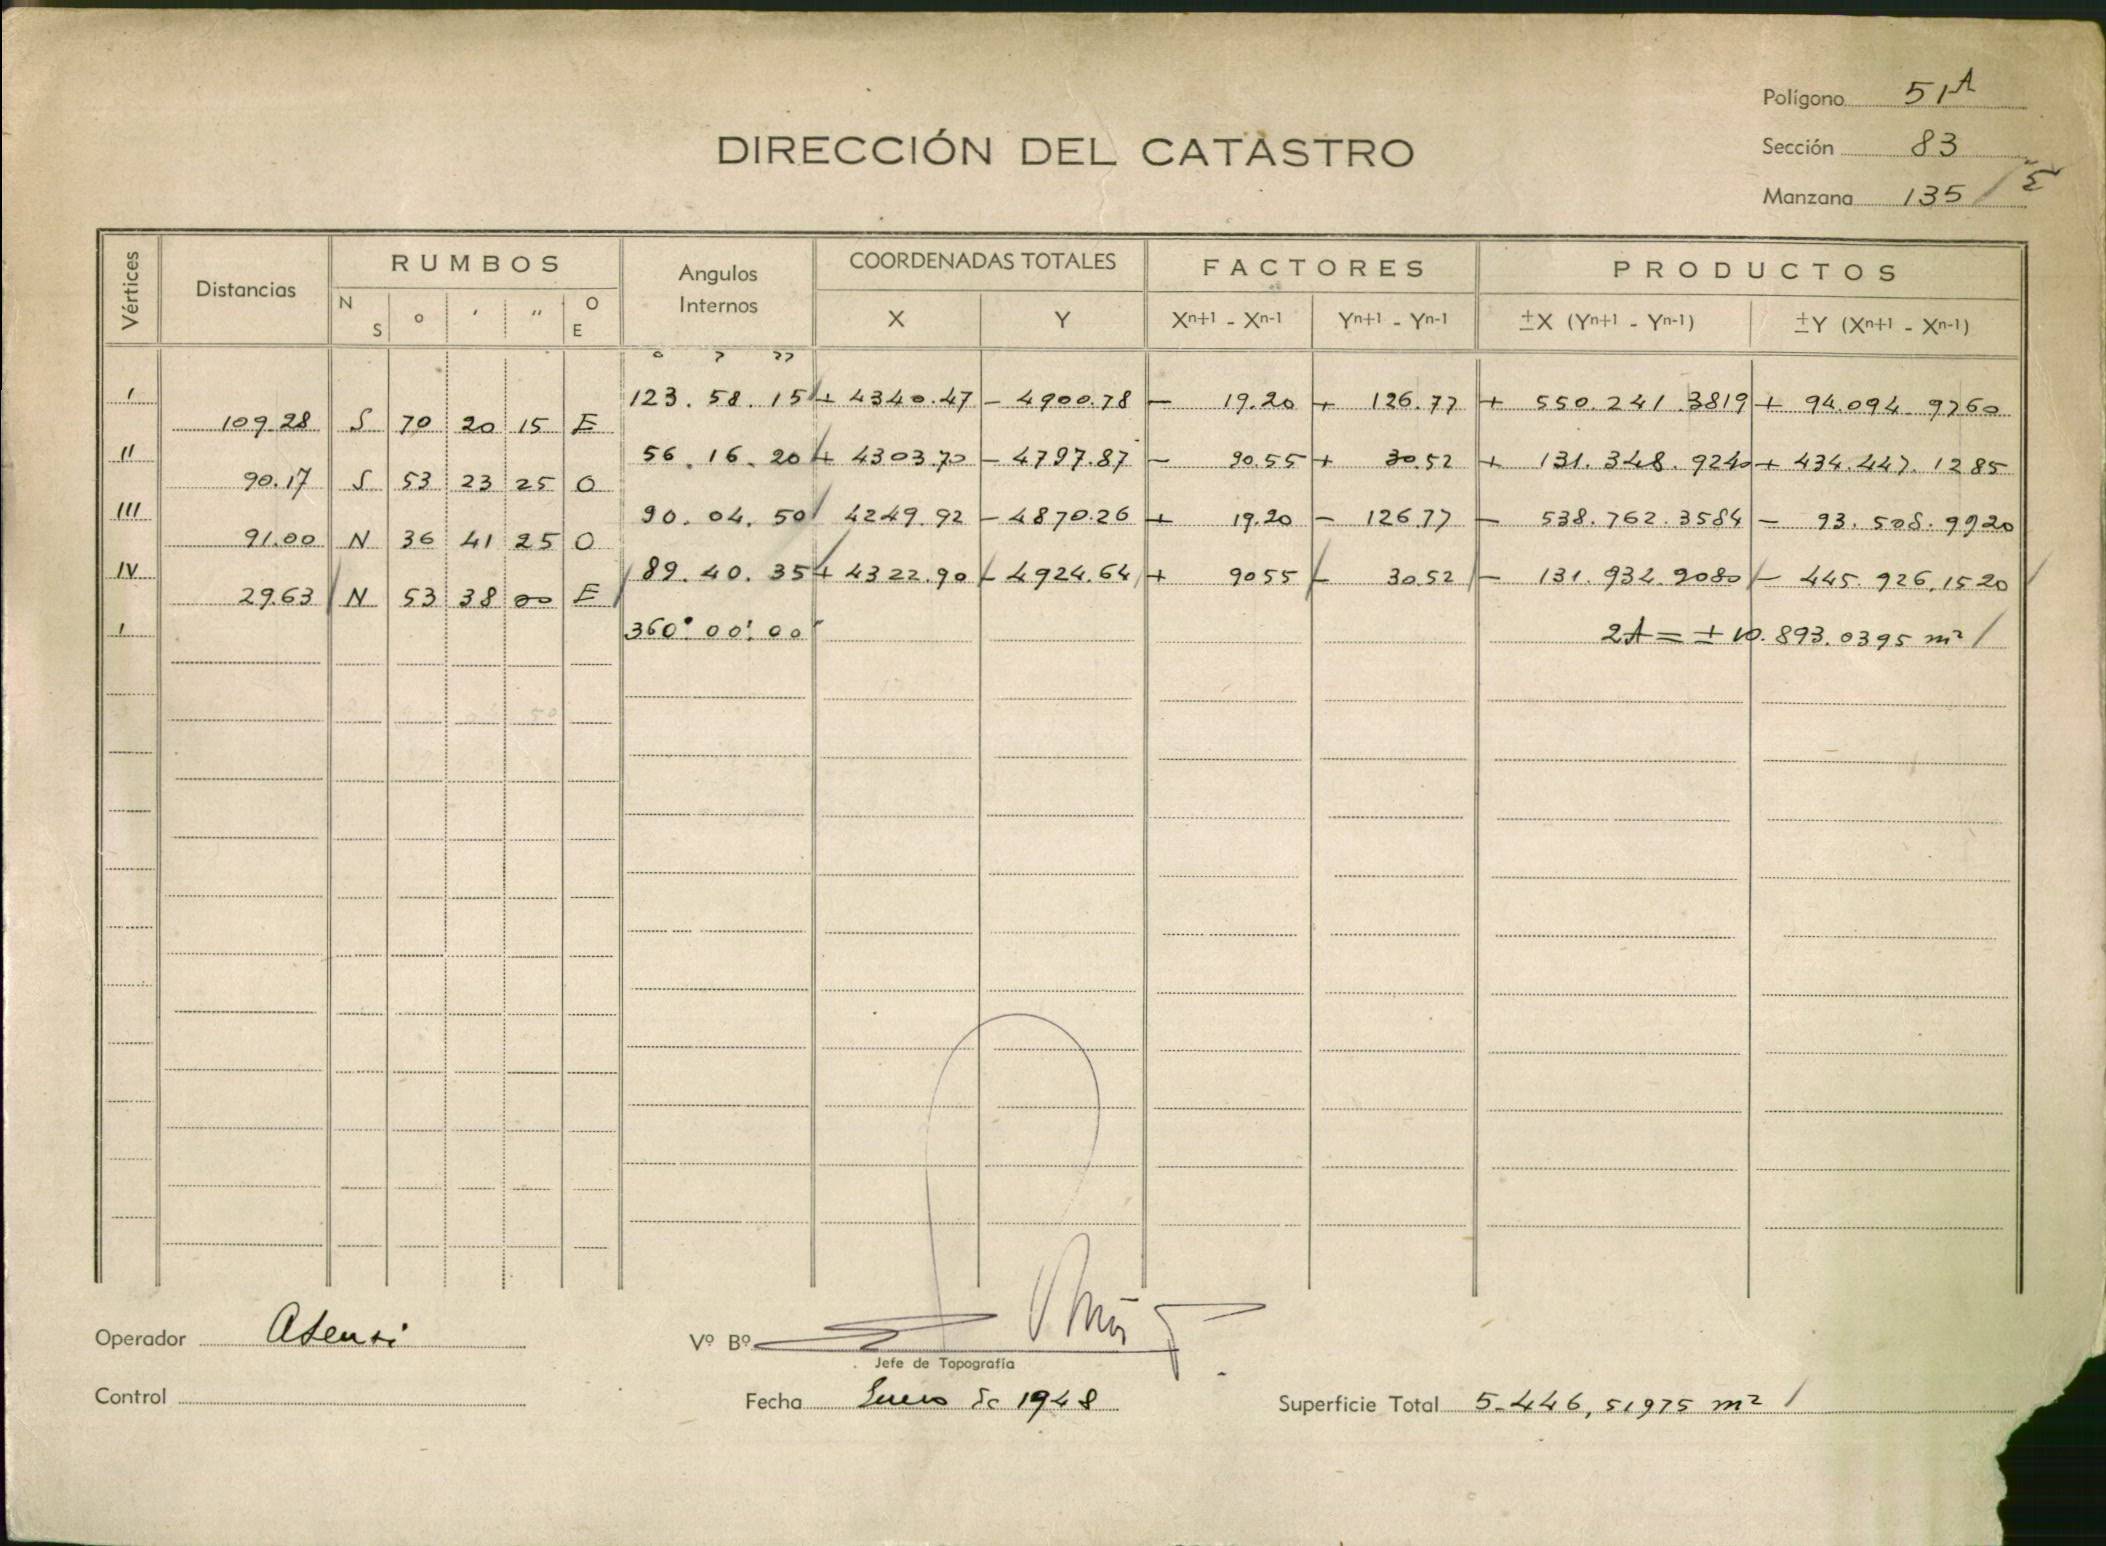 Polígono 51A
DIRECCIÓN DEL CATASTRO
Sección 83
Manzana 135
Vértices Distancias RUMBOS Angulos Internos COORDENADAS TOTALES FACTORES PRODUCTOS
N S ° ' " O E X Y Xn+1 - Xn-1 Yn+1 - Yn-1 ±X (Yn+1 - Yn-1) ±Y (Xn+1 - Xn-1)
° ' "
I 123. 58. 15 + 4340.47 - 4900.78 - 19.20 + 126.77 + 550.241.3819 + 94.094.9760
109.28 S 70 20 15 E
II 56. 16. 20 + 4303.70 - 4797.87 - 90.55 + 30.52 + 131.348.9240 + 434.447.1285
90.17 S 53 23 25 O
III 90. 04. 50 4249.92 - 4870.26 + 19.20 - 126.77 - 538.762.3584 - 93.508.9920
91.00 N 36 41 25 O
IV 89. 40. 35 + 4322.90 - 4924.64 + 9055 - 30.52 - 131.934.9080 - 445.926.1520
29.63 N 53 38 00 E
I 360° 00' 00" 2A = ± 10.893.0395 m²
Operador Asensi
Vº Bº
Jefe de Topografía
Control
Fecha Enero de 1948
Superficie Total 5.446,51975 m²